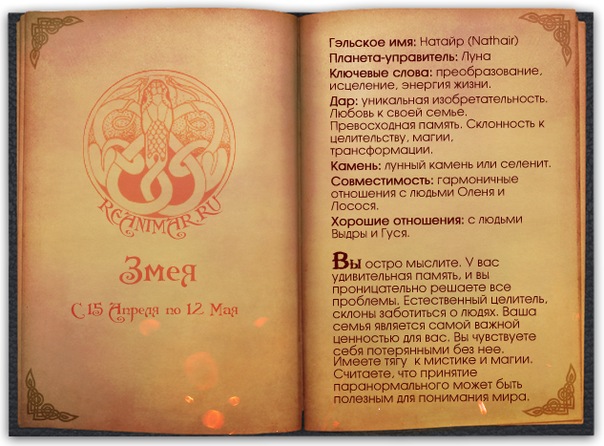 REANIMAR.RU
Змея
С 15 Апреля по 12 Мая
Гэльское имя: Натайр (Nathair)
Планета-управитель: Луна
Ключевые слова: преобразование,
исцеление, энергия жизни.
Дар: уникальная изобретательность.
Любовь к своей семье.
Превосходная память. Склонность к
целительству, магии,
трансформации.
Камень: лунный камень или селенит.
Совместимость: гармоничные
отношения с людьми Оленя и
Лосося.
Хорошие отношения: с людьми
Выдры и Гуся.
Вы остро мыслите. У вас
удивительная память, и вы
проницательно решаете все
проблемы. Естественный целитель,
склоны заботиться о людях. Ваша
семья является самой важной
ценностью для вас. Вы чувствуете
себя потерянными без нее.
Имеете тягу к мистике и магии.
Считаете, что принятие
паранормального может быть
полезным для понимания мира.